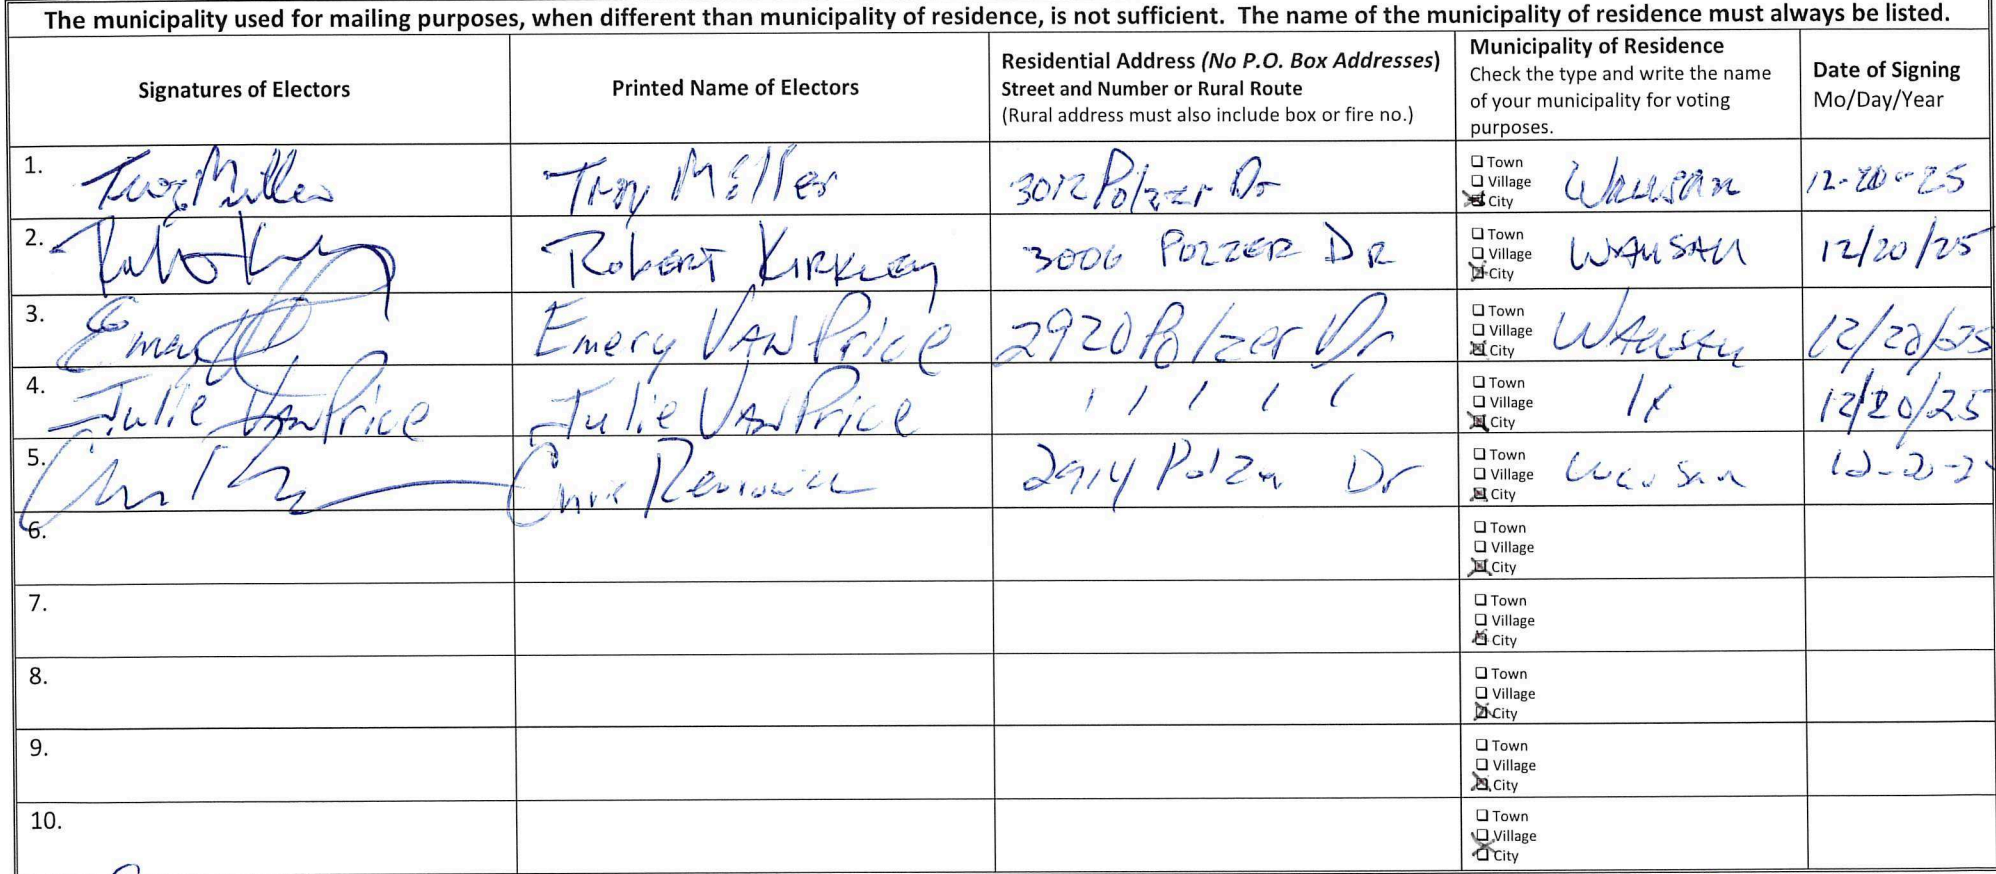 The municipality used for mailing purposes, when different than municipality of residence, is not sufficient. The name of the municipality of residence must always be listed.
Signatures of Electors
Printed Name of Electors
Residential Address (No P.O. Box Addresses)
Street and Number or Rural Route
(Rural address must also include box or fire no.)
Municipality of Residence
Check the type and write the name
of your municipality for voting
purposes.
Date of Signing
Mo/Day/Year
1. Troy Miller Troy Miller 3012 Polzer Dr Town Village City Wausau 12-20-25
2. Robert KIRKLEY 3006 POLZER DR Town Village City WAUSAU 12/20/25
3. Emery Emery VAN Price 2920 Polzer Dr Town Village City WAusau 12/20/25
4. Julie VAN Price Julie VAN Price / / / / / Town Village City 12/20/25
5. Chris 2914 Polzer Dr Town Village City Wausau 12-20-2
6. Town Village City
7. Town Village City
8. Town Village City
9. Town Village City
10. Town Village City